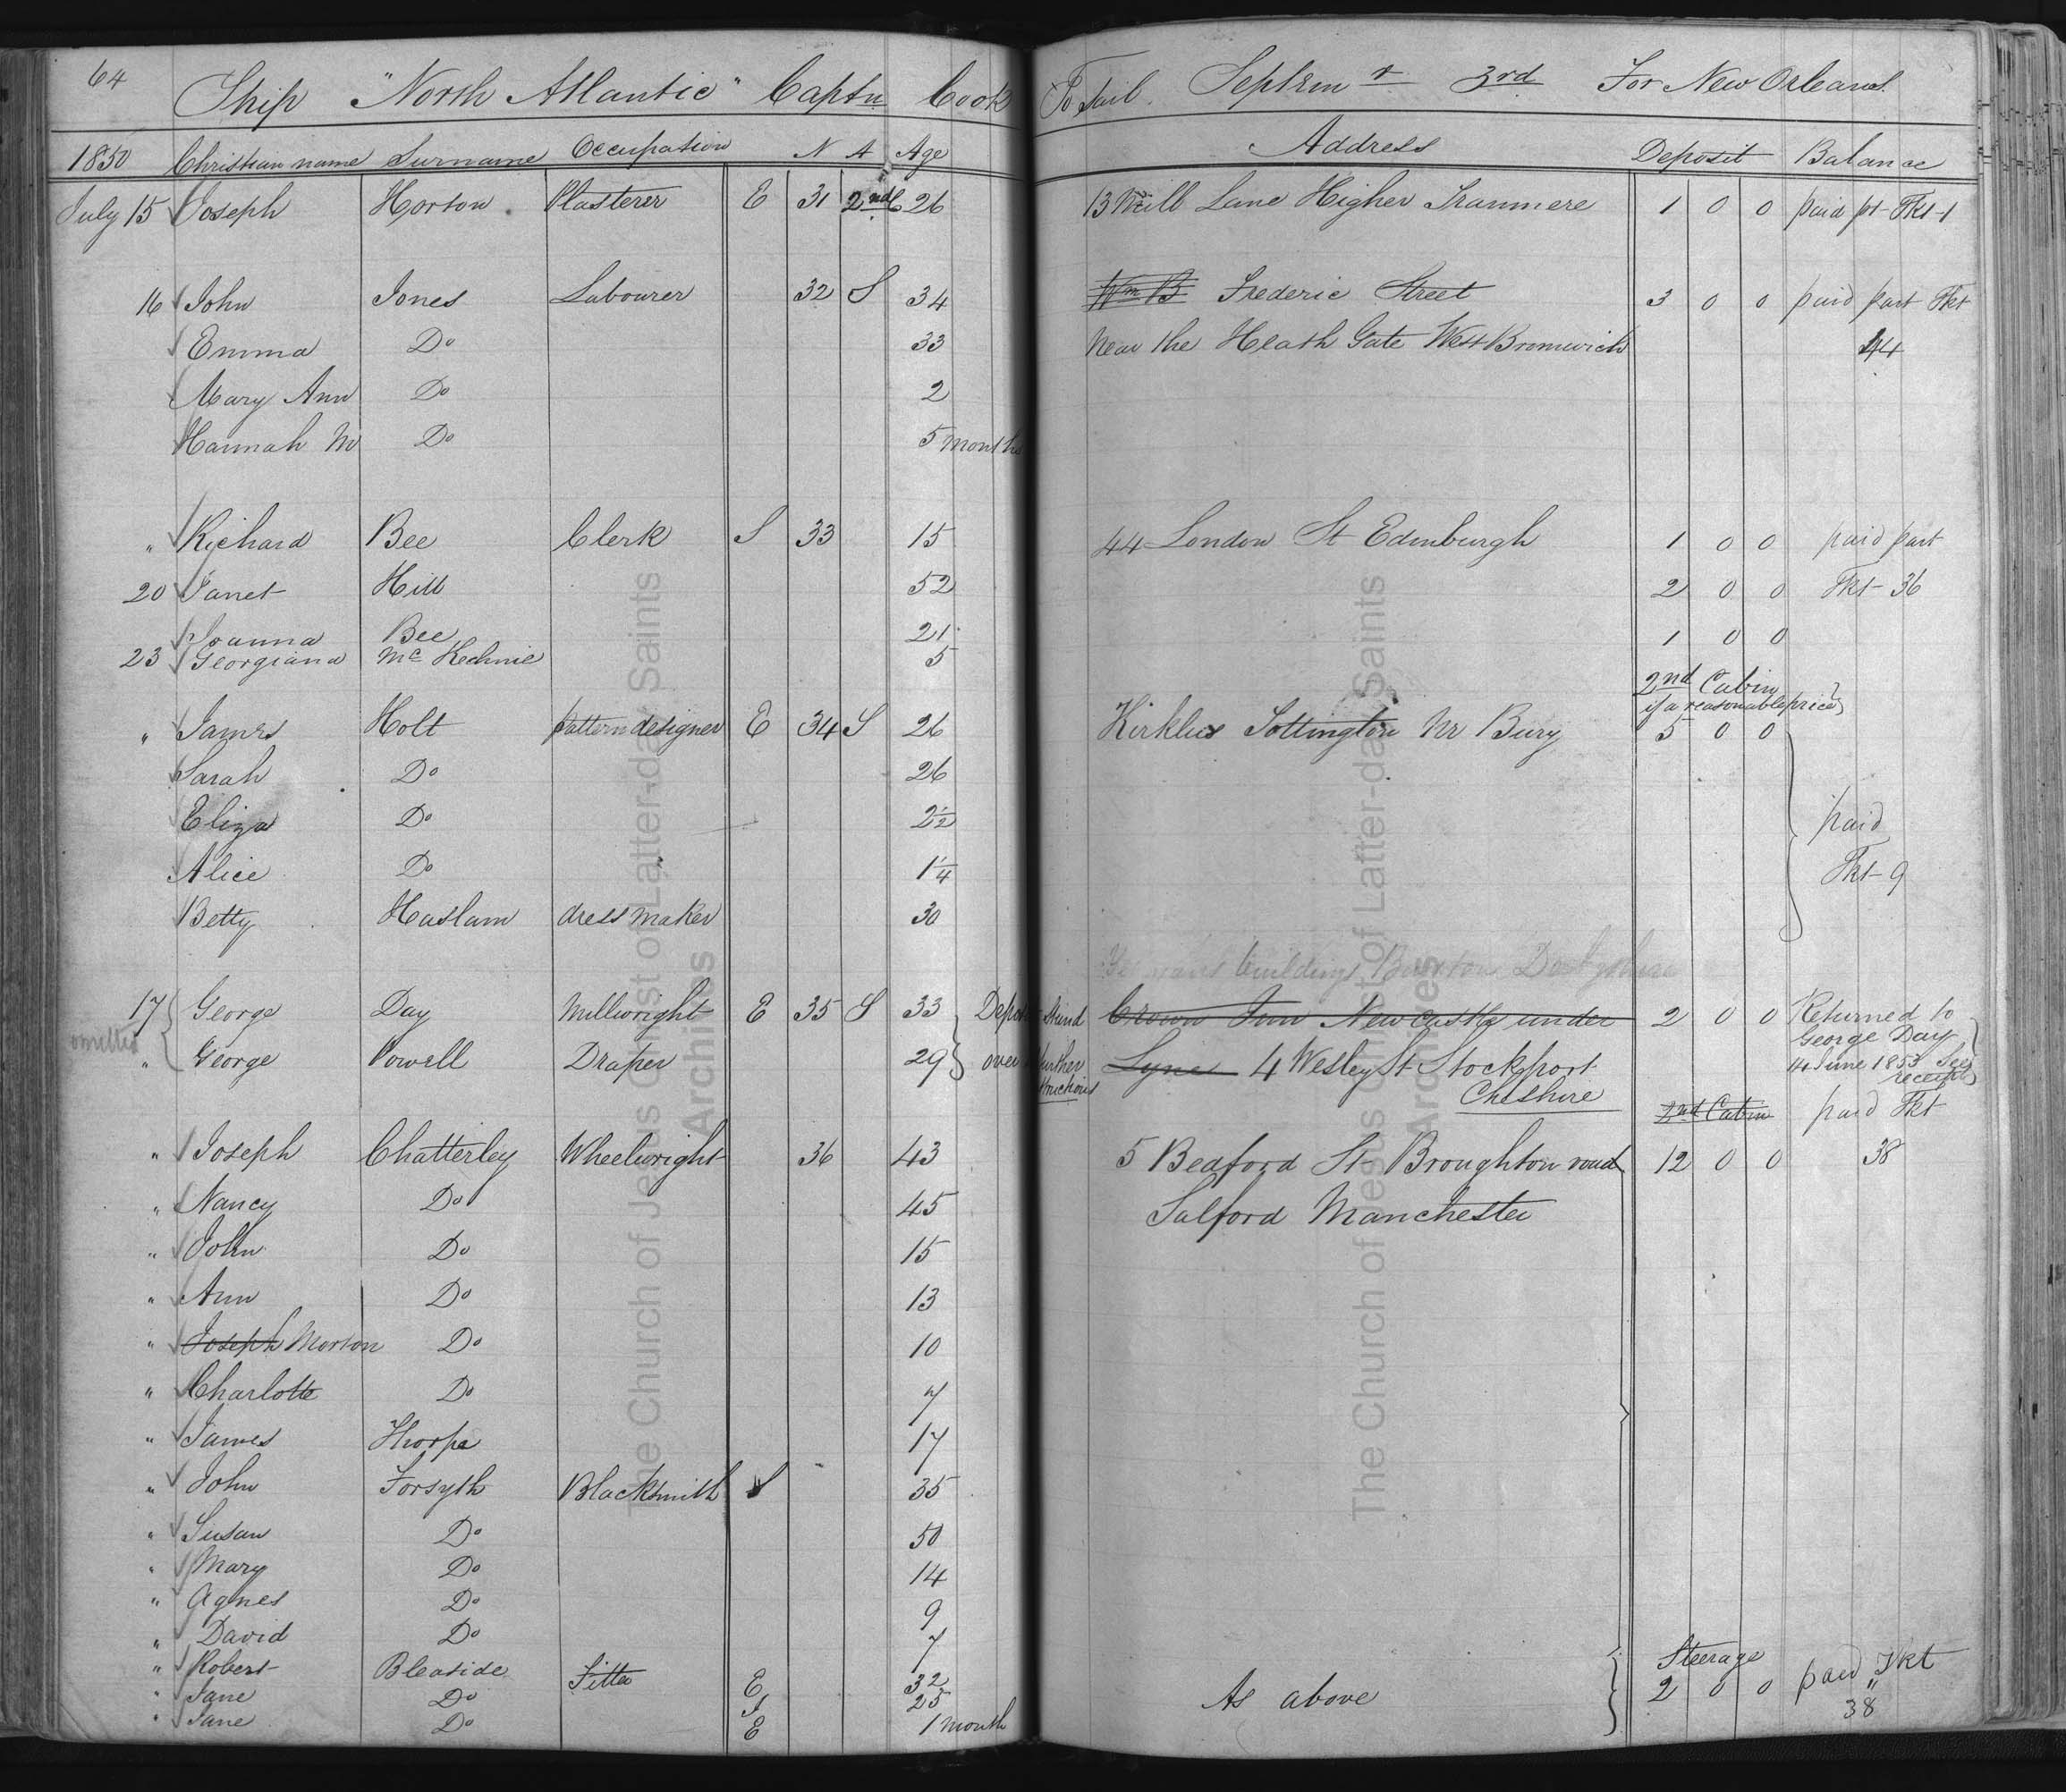 64 Ship "North Atlantic" Captn Cook To Sail Septem r 3rd For New Orleans
1850 Christian name Surname Occupation N A Age Address Deposit Balance
July 15 Joseph Horton Plasterer E 31 2nd C 26 13 Mill Lane Higher Tranmere 1 0 0 paid pt Tkt 1
16 John Jones Labourer 32 S 34 Wm B Frederic Street 3 0 0 paid part Tkt
Emma Do 33 Near the Heath Gate West Bromwich 44
Mary Ann Do 2
Hannah M Do 5 months
" Richard Bee Clerk S 33 15 44 London St Edinburgh 1 0 0 paid part
20 Janet Hill 52 2 0 0 Tkt 36
Joanna Bee 21 1 0 0
23 Georgiana Mc Kechnie 5
2nd Cabin
if a reasonable price
" James Holt pattern designer E 34 S 26 Kirklus Tottington Nr Bury 5 0 0
Sarah Do 26
Eliza Do 2 1/2 paid
Alice Do 1 1/4 Tkt 9
Betty Haslam dress maker 30
buildings Buxton Derbyshire
17 George Day Millwright E 35 S 33 Crown Inn Newcastle under 2 0 0 Returned to
George Day
omitted " George Powell Draper 29 over further Lyne 4 Wesley St Stockport 14 June 1853 See
receipt
Cheshire
2nd Cabin paid Tkt
" Joseph Chatterley Wheelwright 36 43 5 Bedford St Broughton road 12 0 0 38
" Nancy Do 45 Salford Manchester
" John Do 15
" Ann Do 13
" Joseph Morton Do 10
" Charlotte Do 7
" James Thorpe 17
" John Forsyth Blacksmith S 35
" Susan Do 50
" Mary Do 14
" Agnes Do 9
" David Do 7
Steerage
" Robert Bleaside Fitter E 32 As above 2 0 0 paid Tkt
" Jane Do S 25 " 38
" Jane Do E 1 month
The Church of Jesus Christ of Latter-day Saints
Archives
The Church of Jesus Christ of Latter-day Saints
Archives